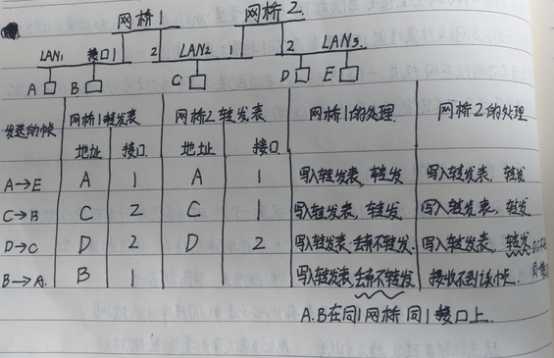 网桥1 网桥2.
LAN1 接口1 2 LAN2 1 2 LAN3.
A B C D E
发送的帧 网桥1转发表 网桥2转发表 网桥1的处理. 网桥2的处理
地址 接口 地址 接口.
A→E A 1 A 1 写入转发表, 转发 写入转发表, 转发
C→B C 2 C 1 写入转发表, 转发. 写入转发表, 转发
D→C D 2 D 2 写入转发表, 丢弃不转发. 写入转发表, 转发
B→A. B 1 写入转发表, 丢弃不转发 接收不到该帧.
A.B在同1网桥同1接口上.